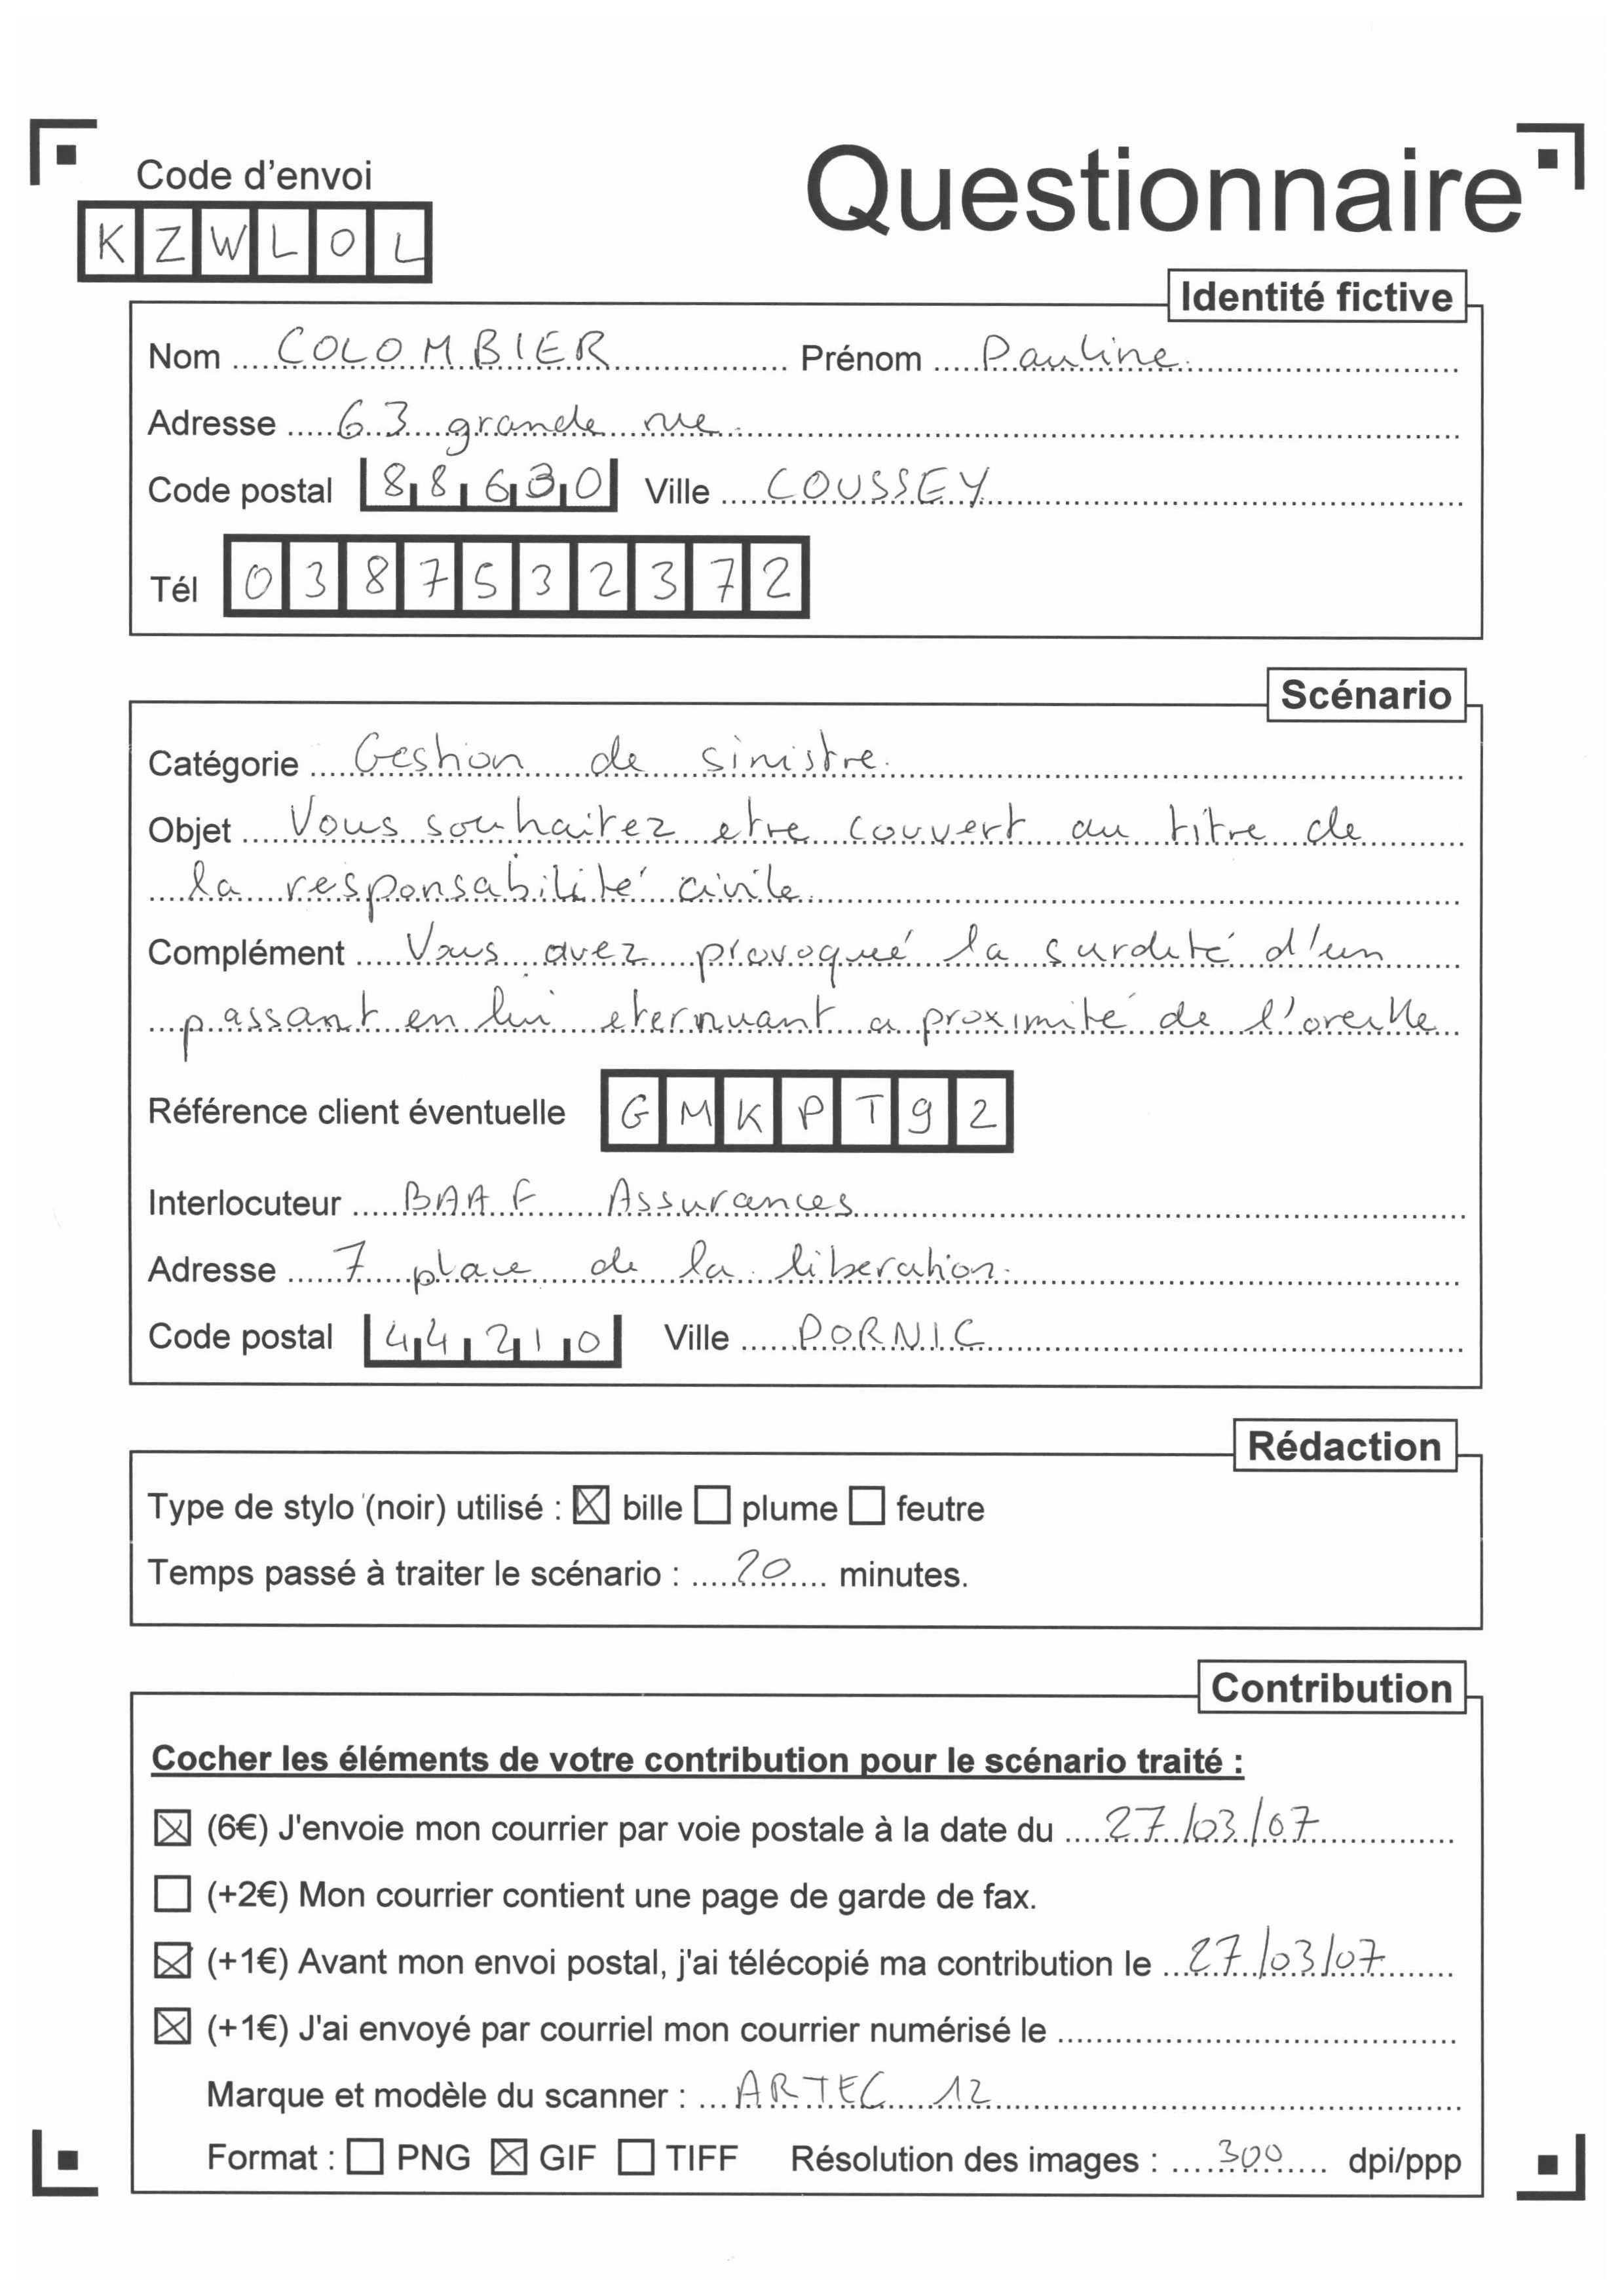 Code d'envoi
Questionnaire
KZWLOL
Identité fictive
Nom COLOMBIER Prénom Pauline
Adresse 63 grande rue
Code postal 88630 Ville COUSSEY
Tél 0387532372
Scénario
Catégorie Gestion de sinistre.
Objet Vous souhaitez etre couvert au titre de
la responsabilité civile
Complément Vous avez provoqué la surdité d'un
passant en lui eternuant a proximité de l'oreille
Référence client éventuelle GMKPT92
Interlocuteur BAAF Assurances
Adresse 7 place de la liberation.
Code postal 44210 Ville PORNIC
Rédaction
Type de stylo (noir) utilisé : ☒ bille ☐ plume ☐ feutre
Temps passé à traiter le scénario : 20 minutes.
Contribution
Cocher les éléments de votre contribution pour le scénario traité :
☒ (6€) J'envoie mon courrier par voie postale à la date du 27/03/07
☐ (+2€) Mon courrier contient une page de garde de fax.
☒ (+1€) Avant mon envoi postal, j'ai télécopié ma contribution le 27/03/07
☒ (+1€) J'ai envoyé par courriel mon courrier numérisé le
Marque et modèle du scanner : ARTEC 12
Format : ☐ PNG ☒ GIF ☐ TIFF Résolution des images : 300 dpi/ppp